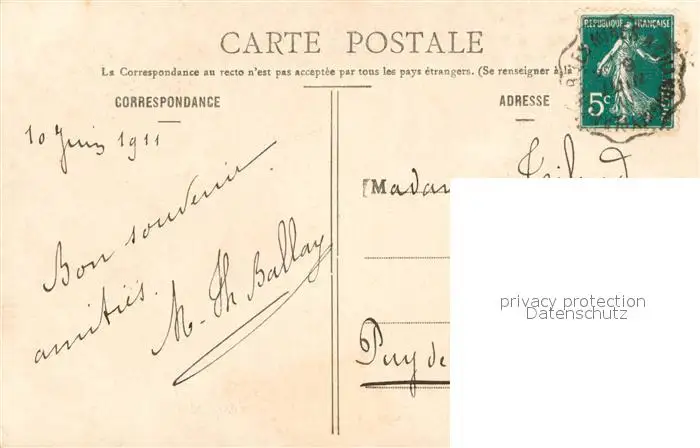 CARTE POSTALE
La Correspondance au recto n'est pas acceptée par tous les pays étrangers. (Se renseigner à la
CORRESPONDANCE
ADRESSE
REPUBLIQUE FRANÇAISE
5c
10 Juin 1911
Bon souvenir
amitiés.
M. Th Ballay
Madam
Puy de
privacy protection
Datenschutz